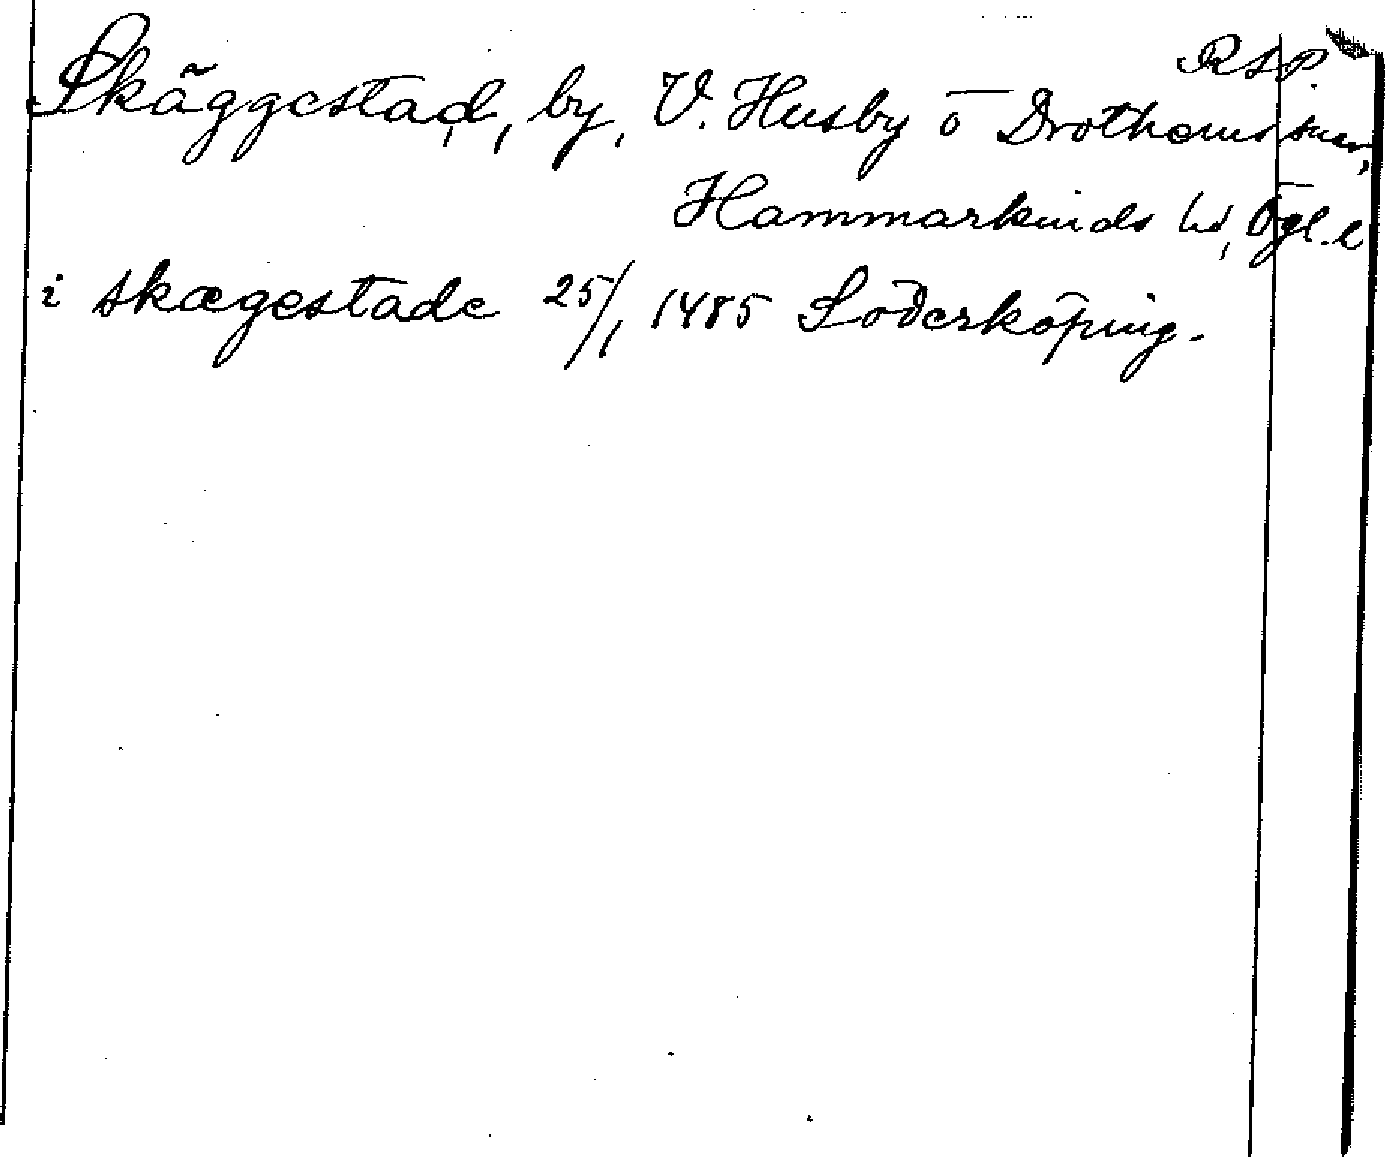 RAP.
Skäggestad, by, V. Husby o Drothems snr,
Hammarkinds hd, Ögl. l
i skægestade 25/1 1485 Söderköping.